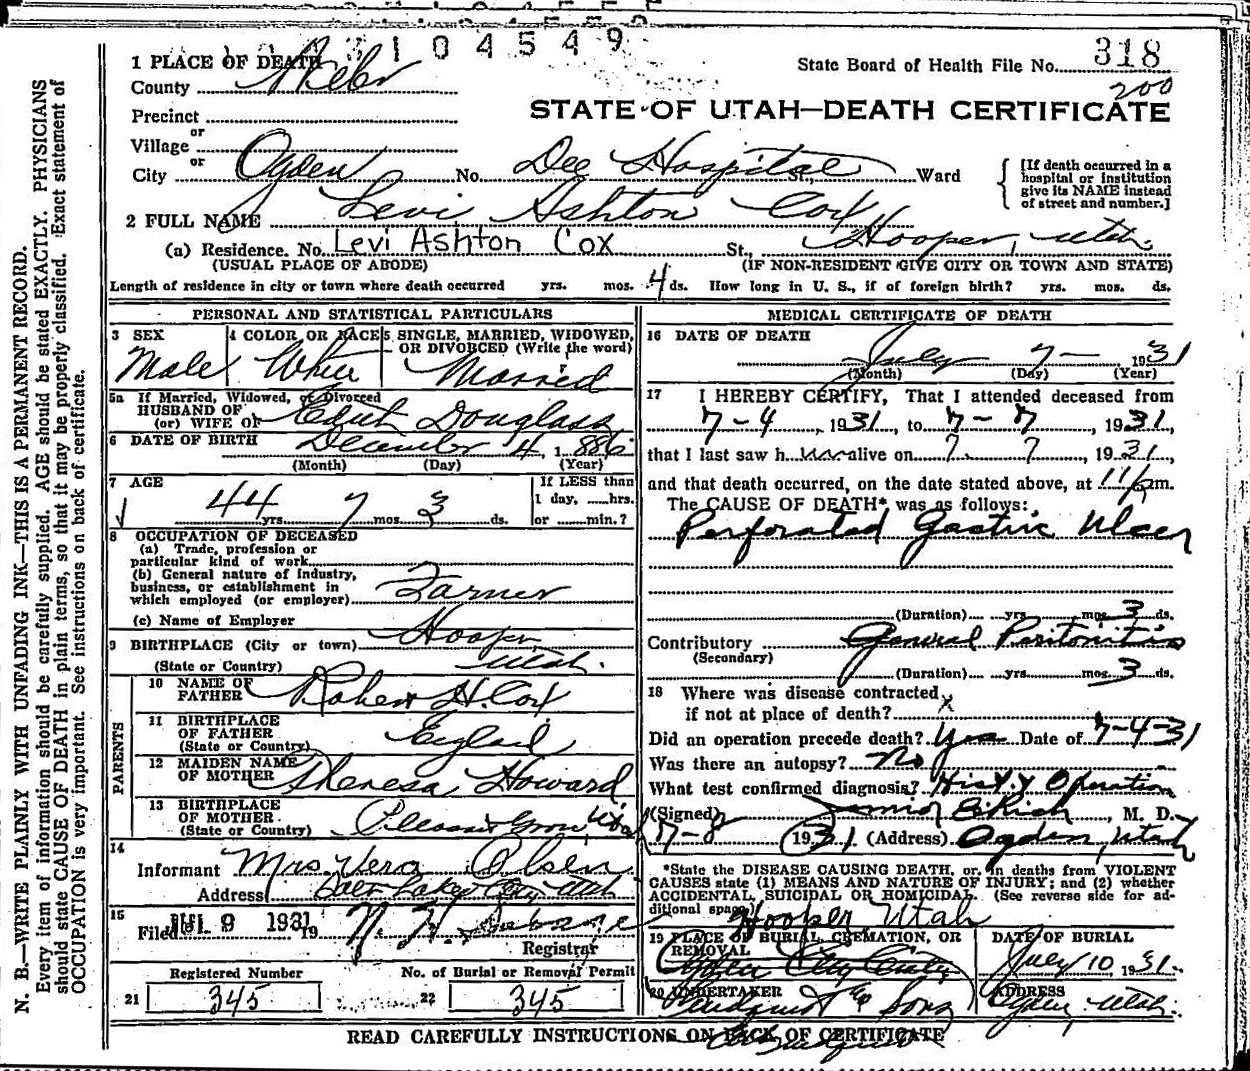 3104549
1 PLACE OF DEATH
State Board of Health File No. 318
County Weber
200
STATE OF UTAH—DEATH CERTIFICATE
Precinct
or
Village
or
City Ogden No. Dee Hospital St., Ward
[If death occurred in a hospital or institution give its NAME instead of street and number.]
2 FULL NAME Levi Ashton Cox
(a) Residence. No. Levi Ashton Cox St., Hooper, Utah.
(USUAL PLACE OF ABODE) (IF NON-RESIDENT GIVE CITY OR TOWN AND STATE)
Length of residence in city or town where death occurred yrs. mos. 4 ds. How long in U. S., if of foreign birth? yrs. mos. ds.
PERSONAL AND STATISTICAL PARTICULARS
3 SEX
Male
4 COLOR OR RACE
White
5 SINGLE, MARRIED, WIDOWED, OR DIVORCED (Write the word)
Married
5a If Married, Widowed, or Divorced
HUSBAND OF
(or) WIFE OF Edith Douglass
6 DATE OF BIRTH December 4, 1886
(Month) (Day) (Year)
7 AGE
44 yrs. 7 mos. 3 ds.
If LESS than
1 day, hrs.
or min.?
8 OCCUPATION OF DECEASED
(a) Trade, profession or
particular kind of work
(b) General nature of industry,
business, or establishment in
which employed (or employer) Farmer
(c) Name of Employer
9 BIRTHPLACE (City or town) Hooper
(State or Country) Utah.
PARENTS
10 NAME OF
FATHER Robert H. Cox
11 BIRTHPLACE
OF FATHER
(State or Country) England
12 MAIDEN NAME
OF MOTHER Theresa Howard
13 BIRTHPLACE
OF MOTHER
(State or Country) Pleasant Grove, Utah
14
Informant Mrs. Vera Olsen
Address Salt Lake City, Utah
15
Filed JUL 9 1931 19
Registrar
Registered Number
21 345
No. of Burial or Removal Permit
22 345
MEDICAL CERTIFICATE OF DEATH
16 DATE OF DEATH
July 7— 1931
(Month) (Day) (Year)
17 I HEREBY CERTIFY, That I attended deceased from
7-4, 1931, to 7-7, 1931,
that I last saw h alive on 7 7, 1931,
and that death occurred, on the date stated above, at m.
The CAUSE OF DEATH* was as follows:
Perforated Gastric Ulcer
(Duration) yrs. mos. 3 ds.
Contributory General Peritonitis
(Secondary)
(Duration) yrs. mos. 3 ds.
18 Where was disease contracted
if not at place of death? x
Did an operation precede death? Yes Date of 7-4-31
Was there an autopsy? No
What test confirmed diagnosis? Hist. & Operation
(Signed) Junior , M. D.
7-8 1931 (Address) Ogden, Utah
*State the DISEASE CAUSING DEATH, or, in deaths from VIOLENT
CAUSES state (1) MEANS AND NATURE OF INJURY; and (2) whether
ACCIDENTAL, SUICIDAL OR HOMICIDAL. (See reverse side for additional space.)
Hooper Utah
19 PLACE OF BURIAL, CREMATION, OR
REMOVAL
Ogden City
DATE OF BURIAL
July 10, 1931.
20 UNDERTAKER
Lindquist & Sons
ADDRESS
Ogden, Utah.
READ CAREFULLY INSTRUCTIONS ON BACK OF CERTIFICATE
N. B.—WRITE PLAINLY WITH UNFADING INK—THIS IS A PERMANENT RECORD.
Every item of information should be carefully supplied. AGE should be stated EXACTLY. PHYSICIANS
should state CAUSE OF DEATH in plain terms, so that it may be properly classified. Exact statement of
OCCUPATION is very important. See instructions on back of certificate.